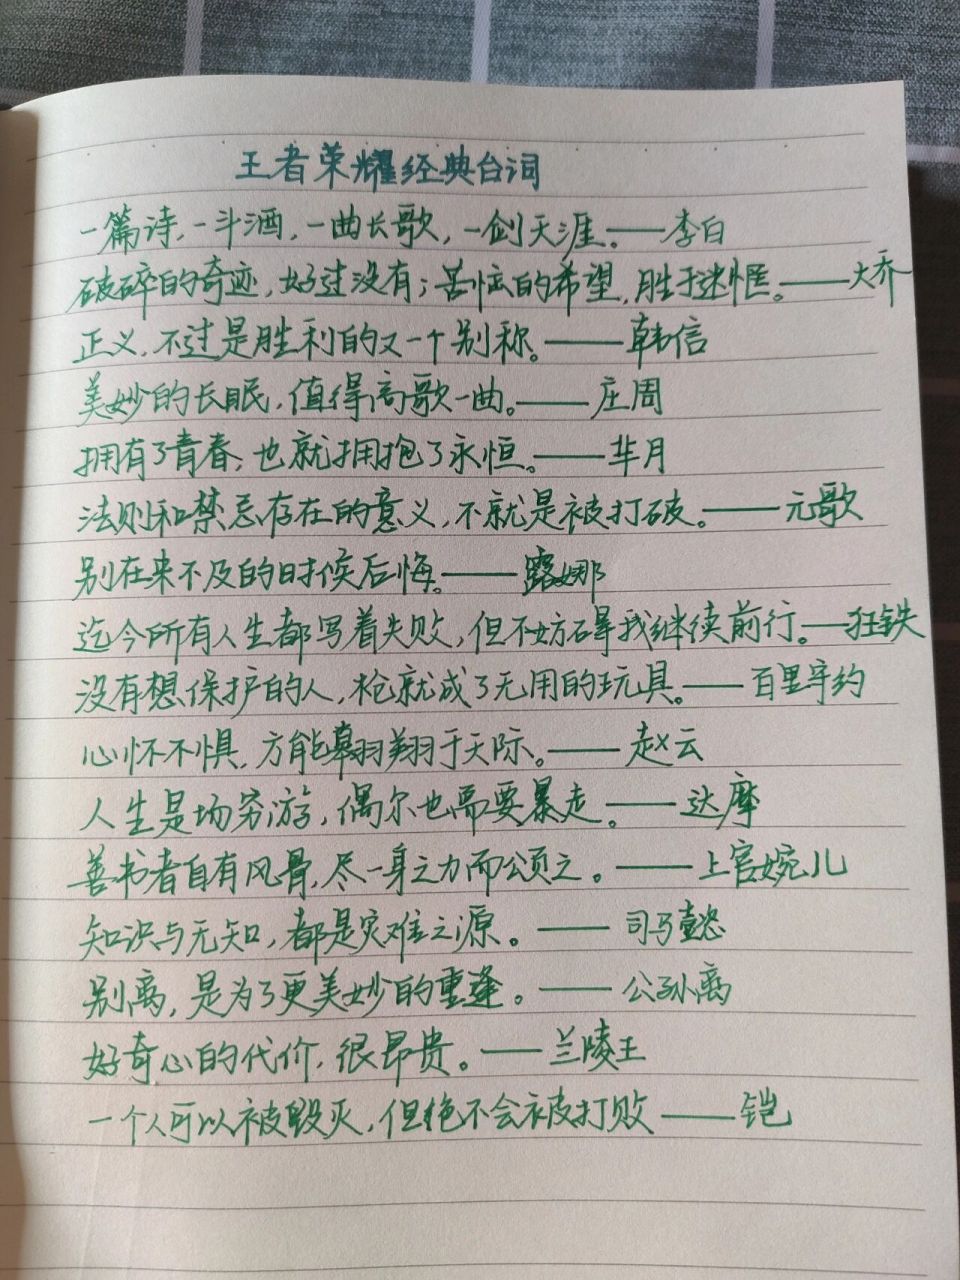 王者荣耀经典台词
一篇诗,一斗酒,一曲长歌,一剑天涯。——李白
破碎的奇迹,好过没有;苦恼的希望,胜于迷惘。——大乔
正义,不过是胜利的又一个别称。——韩信
美妙的长眠,值得高歌一曲。——庄周
拥有了青春,也就拥抱了永恒。——芈月
法则和禁忌存在的意义,不就是被打破。——元歌
别在来不及的时候后悔。——露娜
迄今所有人生都写着失败,但不妨碍我继续前行。——狂铁
没有想保护的人,枪就成了无用的玩具。——百里守约
心怀不惧,方能翱翔于天际。——赵云
人生是场穷游,偶尔也需要暴走。——达摩
善书者自有风骨,尽一身之力而公贡之。——上官婉儿
知识与无知,都是灾难之源。——司马懿
别离,是为了更美妙的重逢。——公孙离
好奇心的代价,很昂贵。——兰陵王
一个人可以被毁灭,但绝不会被打败——铠